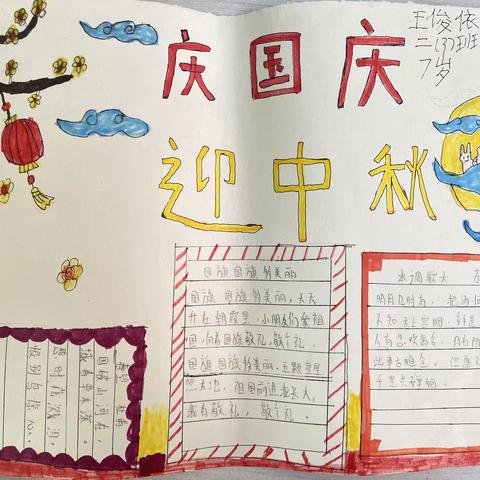 庆国庆
迎中秋
王俊依
二(3)班
7岁
国旗国旗多美丽
国旗国旗多美丽,天天
升在朝霞里,小朋友们爱祖
国,向着国旗敬礼,敬个礼。
国旗国旗多美丽,五颗星星
照大地,祖国前进我长大,
我向敬礼,敬个礼。
水调歌头 苏
明月几时有,把酒问
不知天上宫阙,
人有悲欢离合,月有阴
此事古难全,但愿人
千里
春望 杜甫
国破山河在,
城春草木深。
感时花溅泪,
恨别鸟惊心。